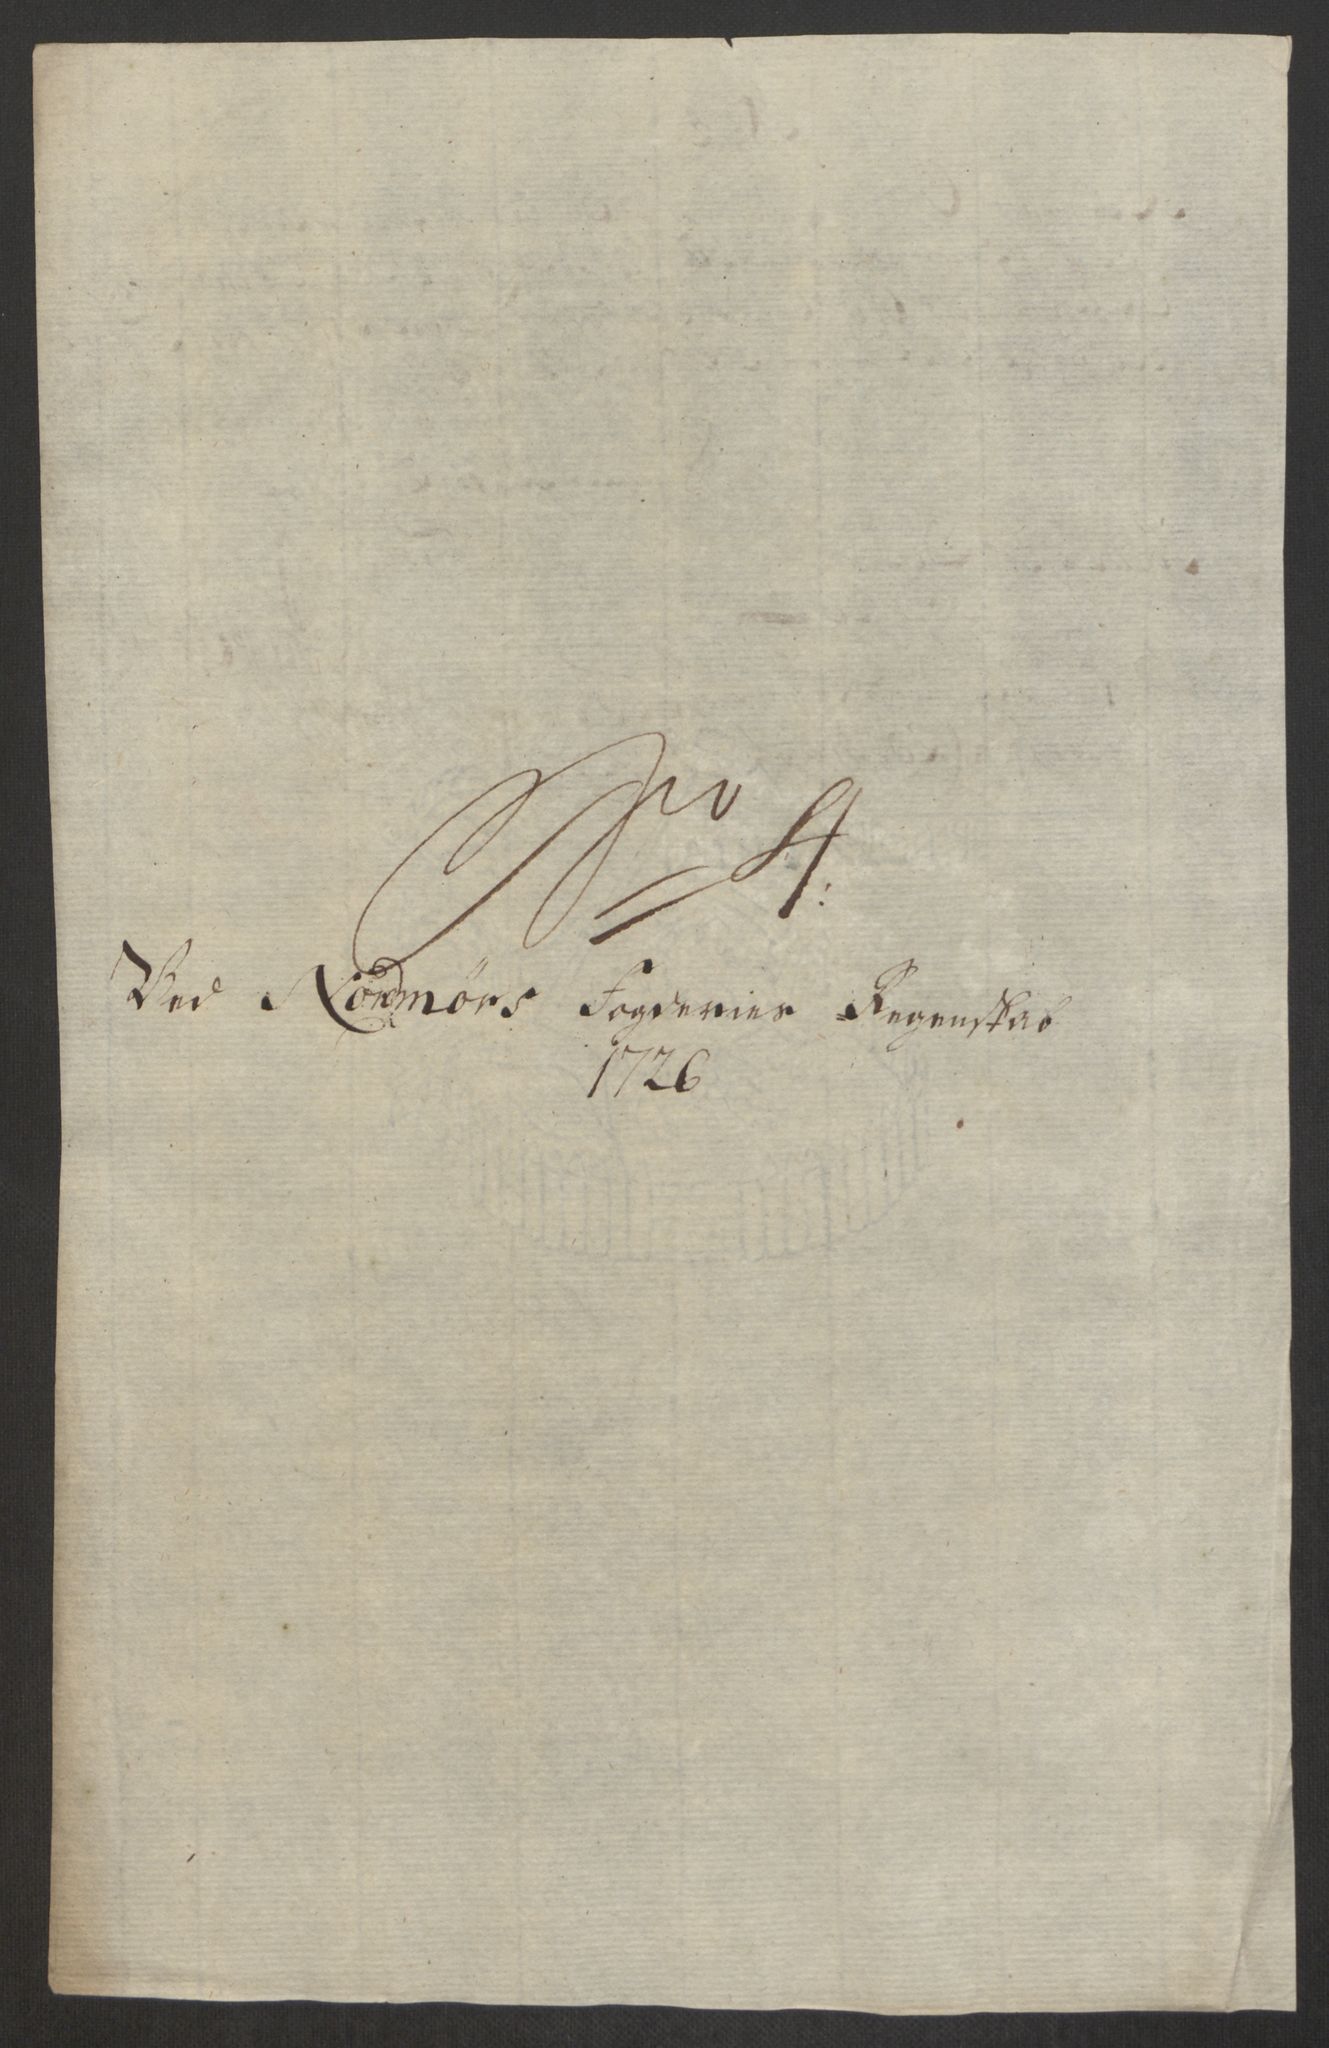 No 4:
Ved Nordmørs Fogderies Regenskab
1726